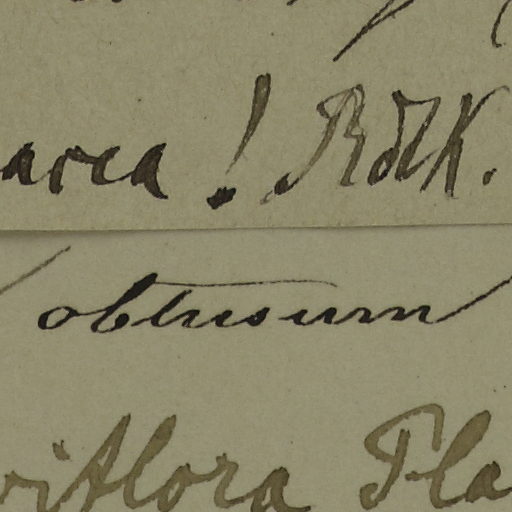 area! RdK.
obtusum
viflora Fla